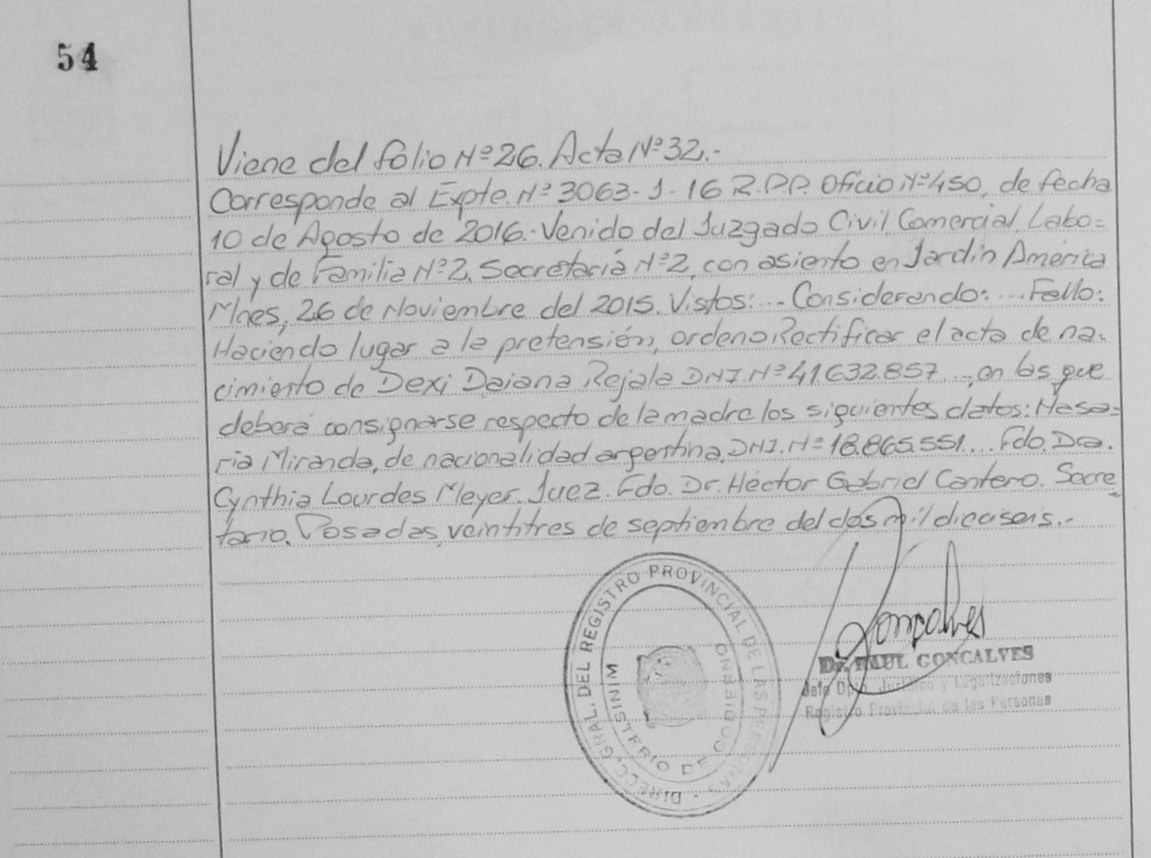 54
Viene del folio Nº 26. Acta Nº 32.-
Corresponde al Expte. Nº 3063-J-16 R.P.P. Oficio Nº 450, de fecha
10 de Agosto de 2016.- Venido del Juzgado Civil Comercial, Labo=
ral y de Familia Nº 2, Secretaría Nº 2, con asiento en Jardín América
Mnes, 26 de Noviembre del 2015. Vistos:... Considerando:... Fallo:
Haciendo lugar a la pretensión, ordeno Rectificar el acta de na-
cimiento de Dexi Daiana Rejala DNI. Nº 41.632.857..., en las que
deberá consignarse respecto de la madre los siguientes datos: Nasa=
ria Miranda, de nacionalidad argentina, DNI. Nº 18.865.551... Fdo. Dra.
Cynthia Lourdes Meyer. Juez. Fdo. Dr. Héctor Gabriel Cantero. Secre
tario. Posadas, veintitres de septiembre del dos mil dieciseis.-
DIRECC. GRAL. DEL REGISTRO PROVINCIAL DE LAS PERSONAS
MINISTERIO DE GOBIERNO
Goncalves
Dr. RAUL GONCALVES
Jefe Dpto. Jurídico y Legalizaciones
Registro Provincial de las Personas